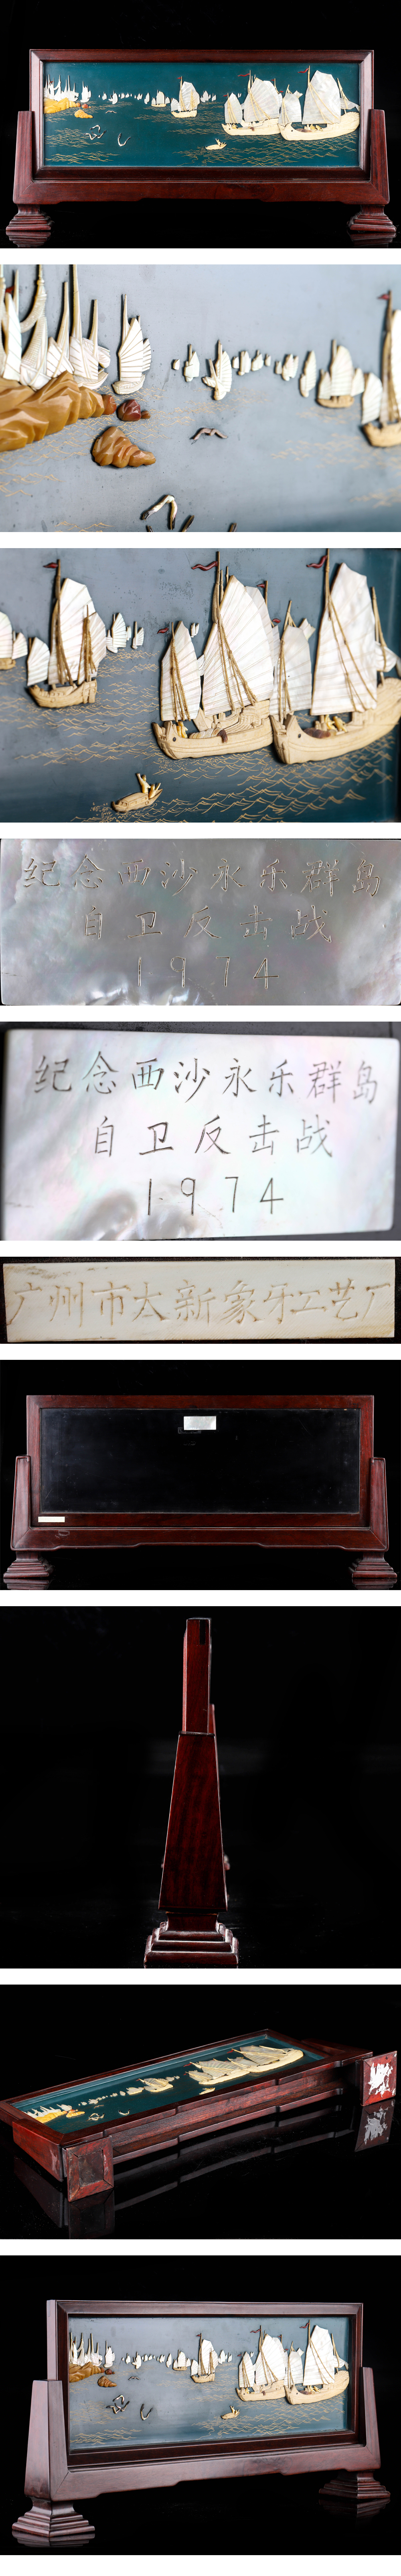 纪念西沙永乐群岛
自卫反击战
1974
纪念西沙永乐群岛
自卫反击战
1974
广州市大新象牙工艺厂